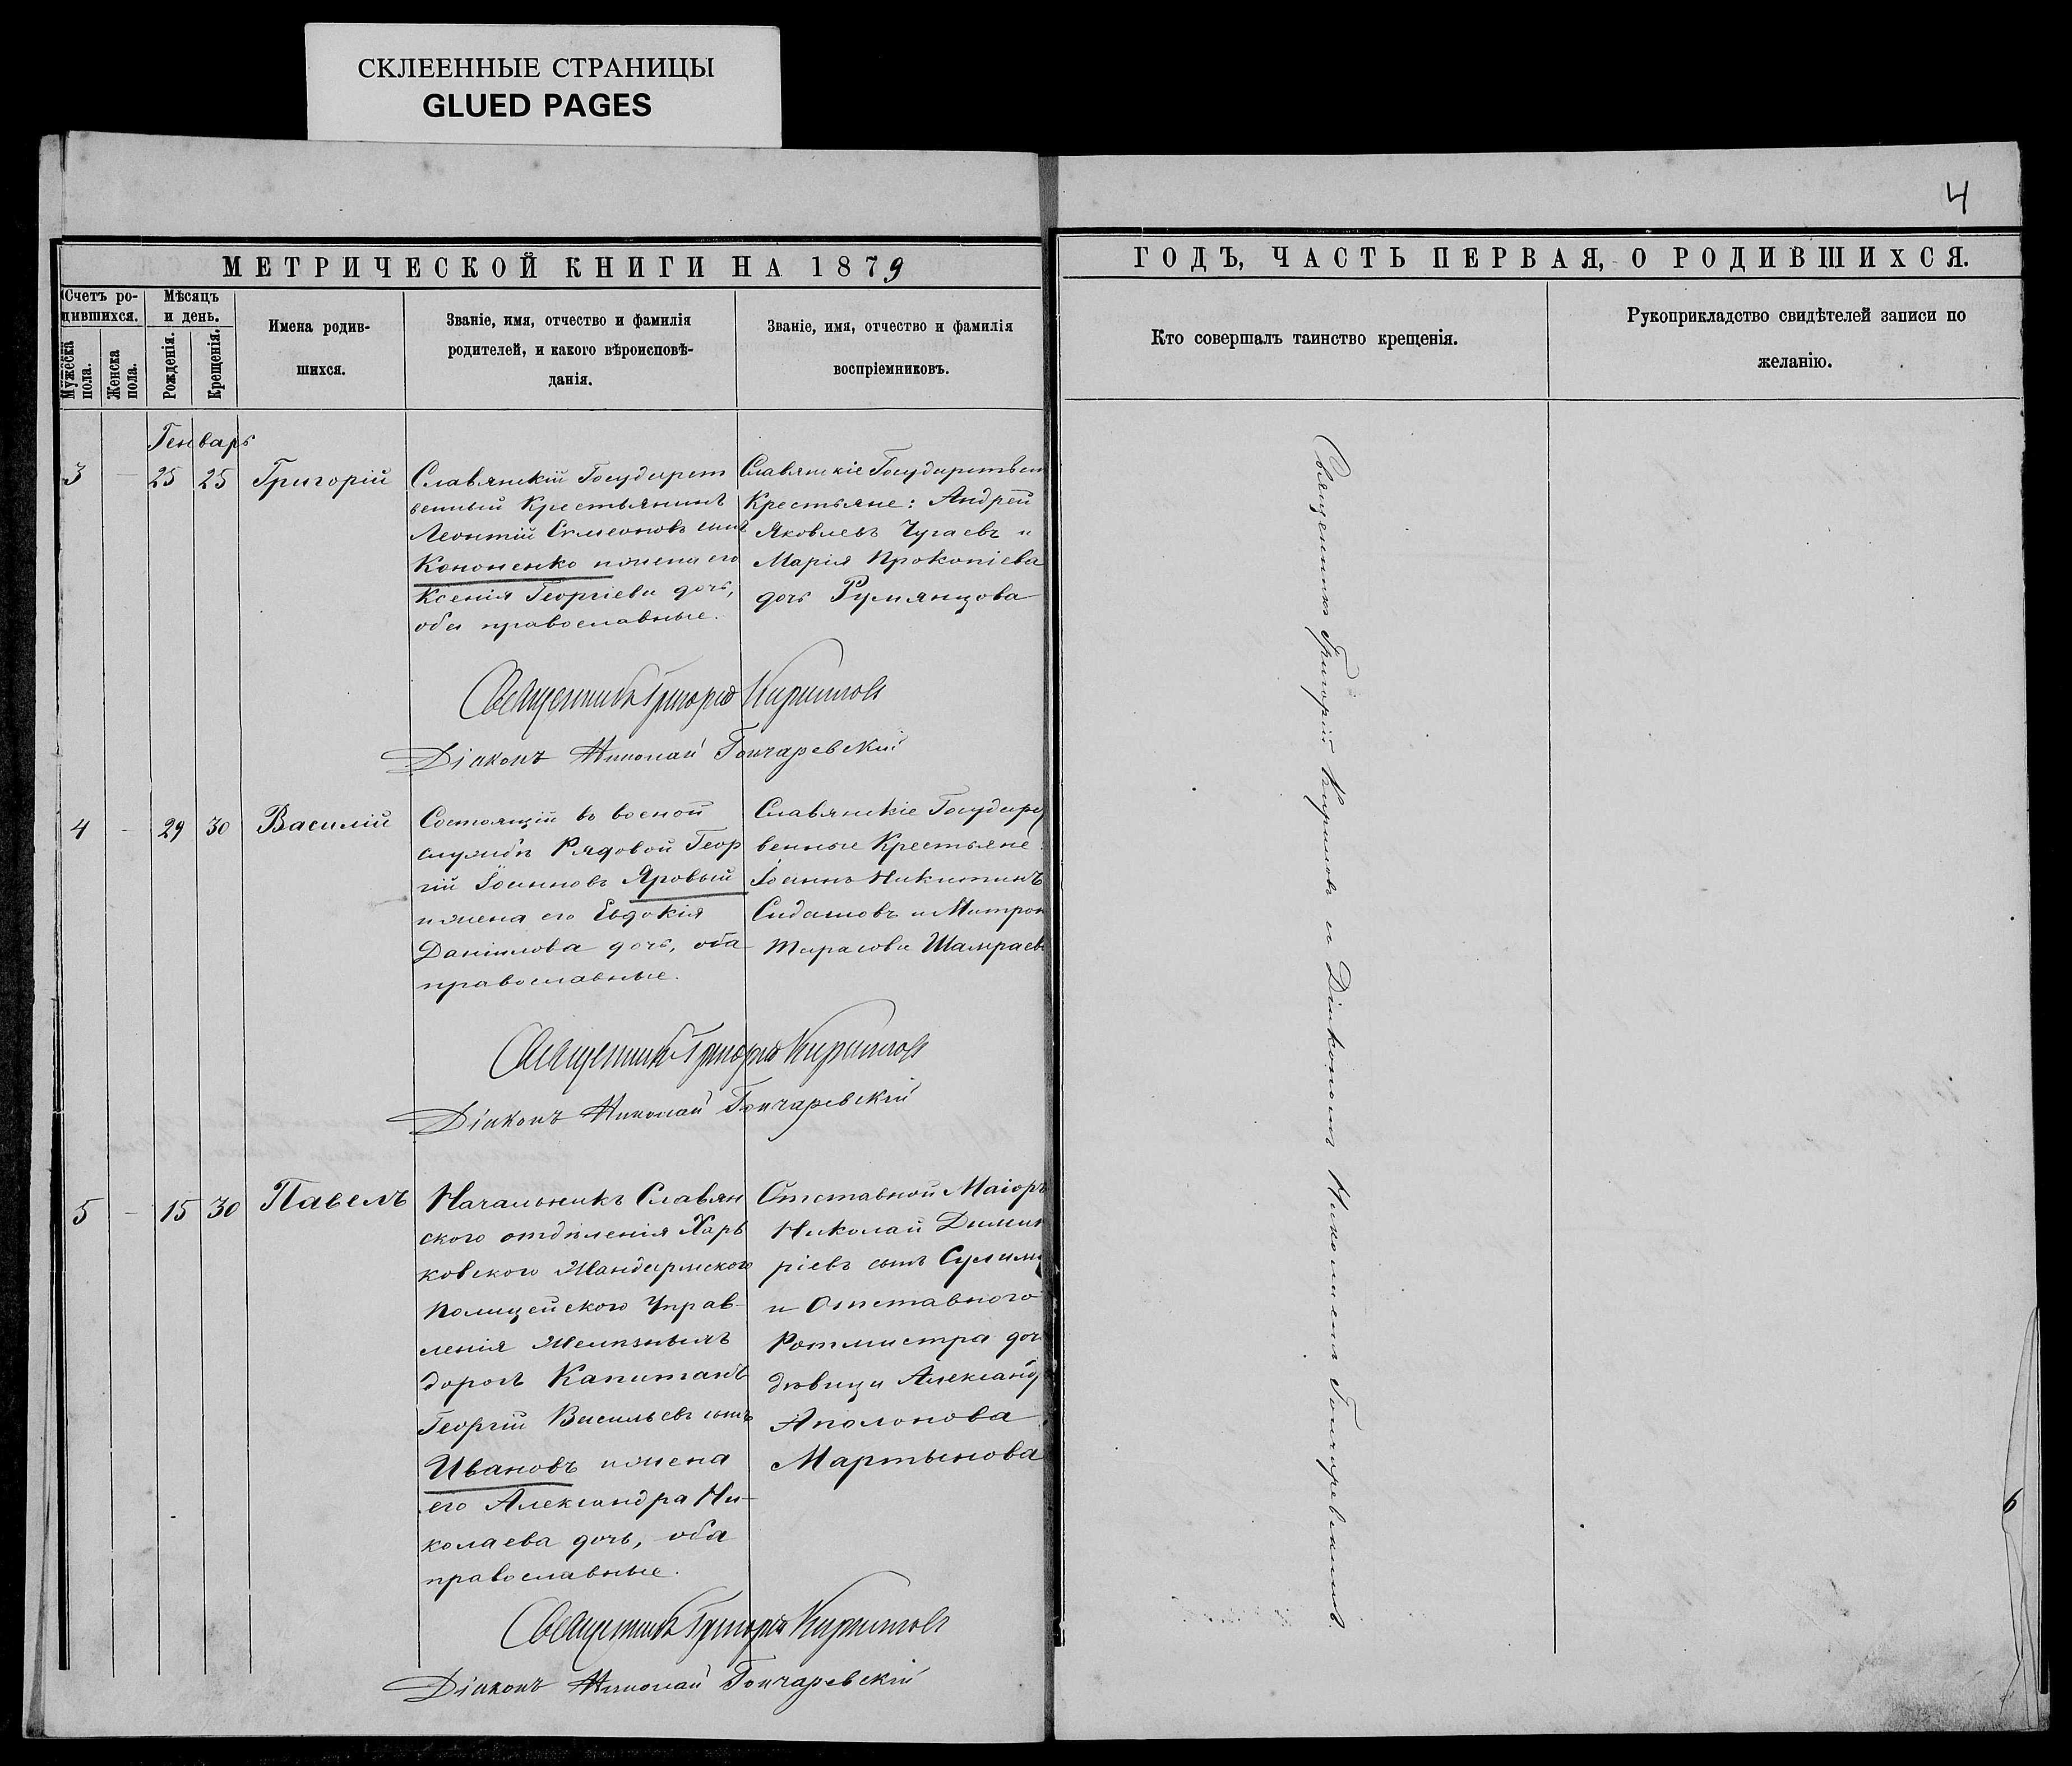 СКЛЕЕННЫЕ СТРАНИЦЫ
GLUED PAGES
4
МЕТРИЧЕСКОЙ КНИГИ НА 1879
ГОДЪ, ЧАСТЬ ПЕРВАЯ, О РОДИВШИХСЯ.
Счетъ ро-
дившихся.
Мужеска
пола.
Женска
пола.
Мѣсяцъ
и день.
Рожденія.
Крещенія.
Имена родив-
шихся.
Званіе, имя, отчество и фамилія
родителей, и какого вѣроисповѣ-
данія.
Званіе, имя, отчество и фамилія
воспріемниковъ.
Кто совершалъ таинство крещенія.
Рукоприкладство свидѣтелей записи по
желанію.
Генварь
3 – 25 25 Григорій
Славянскій Государст
венный Крестьянинъ
Леонтій Симеоновъ сынъ
Кононенко и жена его
Ксенія Георгіева дочь,
оба православные.
Славянскіе Государствен
Крестьяне: Андрей
Яковлевъ Чугаевъ и
Марія Прокопіева
дочь Румянцова
Священникъ Григорій Кириллов
Діаконъ Николай Гончаревскій
4 – 29 30 Василій
Состоящій въ военой
службѣ Рядовой Геор
гій Іоанновъ Яровый
и жена его Евдокія
Даніилова дочь, оба
православные.
Славянскіе Государс
венные Крестьяне
Іоаннъ Никитинъ
Сидашовъ и Матрон
Тарасова Шамраев
Священникъ Григорій Кириллов
Діаконъ Николай Гончаревскій
5 – 15 30 Павелъ
Начальникъ Славян
ского отдѣленія Харь
ковского Жандармского
Полицейского Управ-
ленія Желѣзныхъ
дорогъ Капитанъ
Георгій Васильевъ сынъ
Ивановъ и жена
его Александра Ни-
колаева дочь, оба
православные.
Отставной Маіоръ
Николай Димит
ріевъ сынъ Сулима
и Отставного
Ротмистра доч
дѣвица Александ
Аполонова
Мартынова
Священникъ Григорій Кириллов
Діаконъ Николай Гончаревскій
Священникъ Григорій Кирилловъ и Діакономъ Николаемъ Гончаревскимъ.